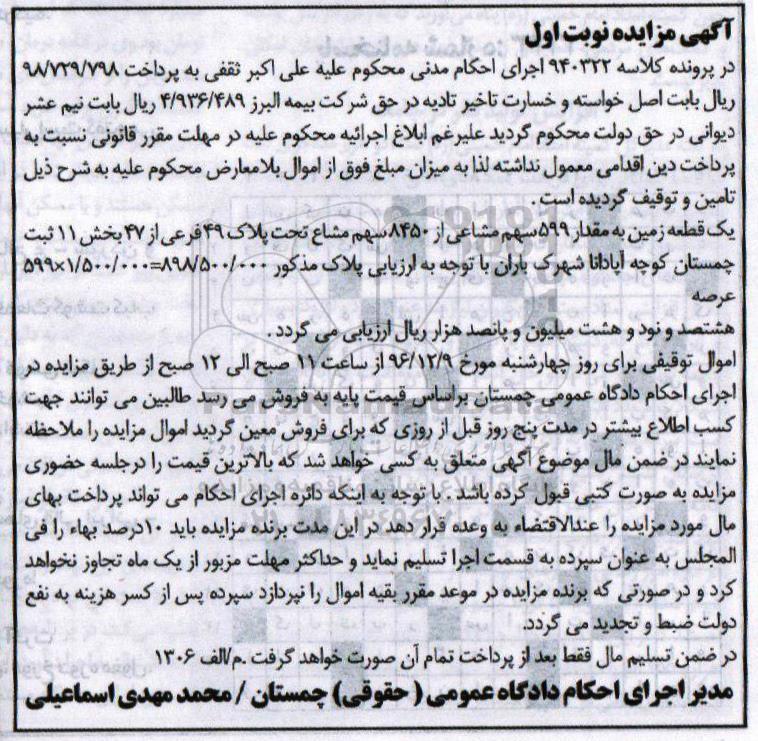 آگهی مزایده نوبت اول
در پرونده کلاسه ۹۴۰۳۲۲ اجرای احکام مدنی محکوم علیه علی اکبر ثقفی به پرداخت ۹۸/۷۲۹/۷۹۸
ریال بابت اصل خواسته و خسارت تاخیر تادیه در حق شرکت بیمه البرز ۴/۹۳۶/۴۸۹ ریال بابت نیم عشر
دیوانی در حق دولت محکوم گردید علیرغم ابلاغ اجرائیه محکوم علیه در مهلت مقرر قانونی نسبت به
پرداخت دین اقدامی معمول نداشته لذا به میزان مبلغ فوق از اموال بلامعارض محکوم علیه به شرح ذیل
تامین و توقیف گردیده است.
یک قطعه زمین به مقدار ۵۹۹ سهم مشاعی از ۸۴۵۰ سهم مشاع تحت پلاک ۴۹ فرعی از ۴۷ بخش ۱۱ ثبت
چمستان کوچه آپادانا شهرک یاران با توجه به ارزیابی پلاک مذکور ۸۹۸/۵۰۰/۰۰۰=۱/۵۰۰/۰۰۰×۵۹۹
عرصه
هشتصد و نود و هشت میلیون و پانصد هزار ریال ارزیابی می گردد.
اموال توقیفی برای روز چهارشنبه مورخ ۹۶/۱۲/۹ از ساعت ۱۱ صبح الی ۱۲ صبح از طریق مزایده در
اجرای احکام دادگاه عمومی چمستان براساس قیمت پایه به فروش می رسد طالبین می توانند جهت
کسب اطلاع بیشتر در مدت پنج روز قبل از روزی که برای فروش معین گردید اموال مزایده را ملاحظه
نمایند در ضمن مال موضوع آگهی متعلق به کسی خواهد شد که بالاترین قیمت را درجلسه حضوری
مزایده به صورت کتبی قبول کرده باشد. با توجه به اینکه دائره اجرای احکام می تواند پرداخت بهای
مال مورد مزایده را عندالاقتضاء به وعده قرار دهد در این مدت برنده مزایده باید ۱۰درصد بهاء را فی
المجلس به عنوان سپرده به قسمت اجرا تسلیم نماید و حداکثر مهلت مزبور از یک ماه تجاوز نخواهد
کرد و در صورتی که برنده مزایده در موعد مقرر بقیه اموال را نپردازد سپرده پس از کسر هزینه به نفع
دولت ضبط و تجدید می گردد.
در ضمن تسلیم مال فقط بعد از پرداخت تمام آن صورت خواهد گرفت .م/الف ۱۳۰۶
مدیر اجرای احکام دادگاه عمومی (حقوقی) چمستان / محمد مهدی اسماعیلی